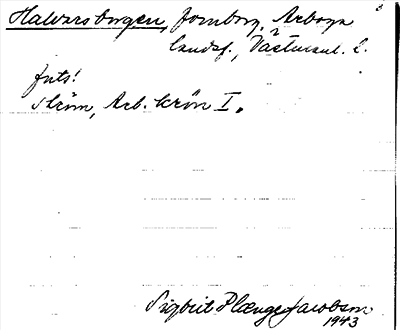 Halvarsborgen, fornborg, Arboga
landsf., Västmanl. l.
futs!
Ström, Arb. krön I.
Sigbrit Plænge Jacobson
1943